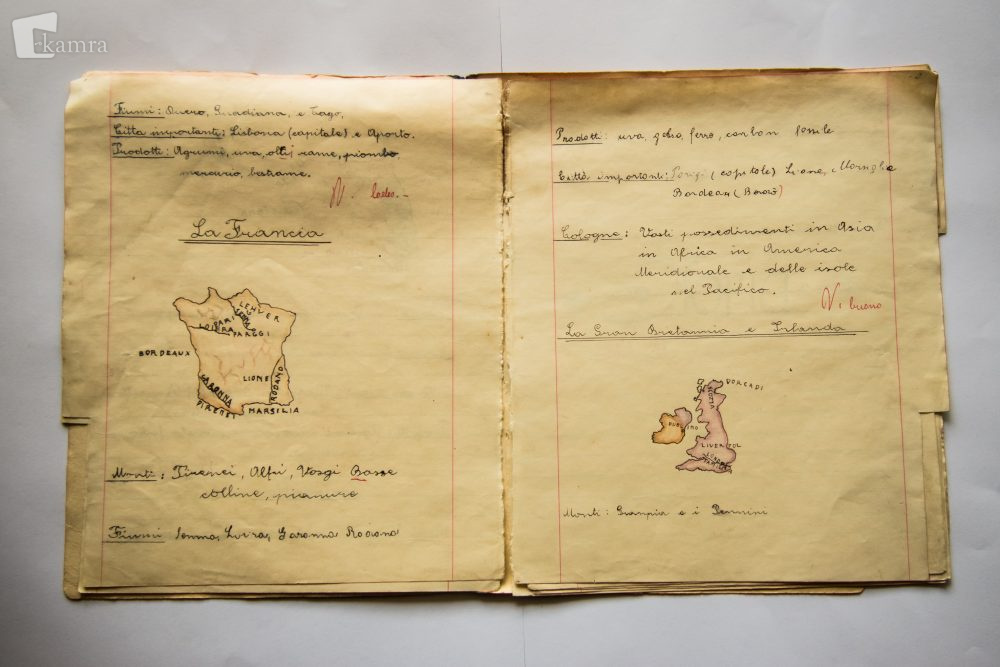 kamra
Fiumi: Duero, Guadiana, e Tago,
Città importanti: Lisbona (capitale) e Aporto.
Prodotti: Agrumi, uva, olii rame, piombo,
mercurio, bestiame.
N. lodev.-
La Francia
LEHVER
PARI
LOIRA
PARIGI
BORDEAUX
LIONE
RODANO
GARONNA
PIRENEI
MARSILIA
Monti: Pirenei, Alpi, Vosgi Basse
colline, pianure
Fiumi Senna, Loira, Garonna Rodano
Prodotti: uva, gelso, ferro, carbon fossile
Città importanti: Parigi (capitale) Lione, Marsiglia
Bordeau (Bordò)
Cologne: Vasti possedimenti in Asia
in Africa in America
Meridionale e delle isole
nel Pacifico.
N. buono
La Gran Bretannia e Irlanda
ORCADI
SCOZIA
DUBLINO
LIVERPOL
LONDRA
Monti: Granpia e i Pennini